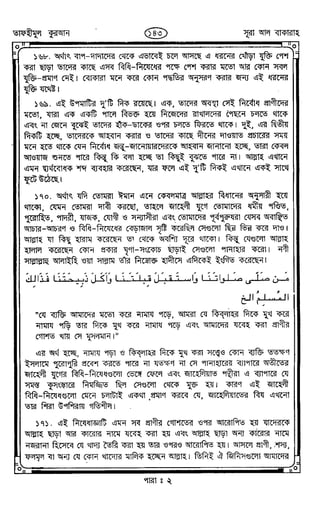 তাফহীমুল কুরআন
১৪৩
সূরা আল বাকারাহ
১৬৮. অর্থাৎ বাপ-দাদাদের থেকে এভাবেই চলে আসছে এ ধরনের খোঁড়া যুক্তি পেশ
করা ছাড়া তাদের কাছে এসব বিধি-নিষেধের পক্ষে পেশ করার মতো আর কোন সবল
যুক্তি-প্রমাণ নেই। বোকারা মনে করে কোন পদ্ধতির অনুসরণ করার জন্য এই ধরনের
যুক্তি যথেষ্ট।
১৬৯. এই উপমাটির দু'টি দিক রয়েছে। এক, তাদের অবস্থা সেই নির্বোধ প্রাণীদের
মতো, যারা এক একটি পালে বিভক্ত হয়ে নিজেদের রাখালদের পেছনে চলতে থাকে
এবং না জেনে বুঝেই তাদের হাঁক-ডাকের ওপর চলতে ফিরতে থাকে। দুই, এর দ্বিতীয়
দিকটি হচ্ছে, তাদেরকে আহবান করার ও তাদের কাছে দীনের দাওয়াত প্রচারের সময়
মনে হতে থাকে যেন নির্বোধ জন্তু-জানোয়ারদেরকে আহবান জানানো হচ্ছে, তারা কেবল
আওয়াজ শুনতে পারে কিন্তু কি বলা হচ্ছে তা কিছুই বুঝতে পারে না। আল্লাহ এখানে
এমন দ্ব্যর্থবোধক শব্দ ব্যবহার করেছেন, যার ফলে এই দু'টি দিকই এখানে একই সাথে
ফুটে উঠেছে।
১৭০. অর্থাৎ যদি তোমরা ঈমান এনে কেবলমাত্র আল্লাহর বিধানের অনুসারী হয়ে
থাকো, যেমন তোমরা দাবী করছো, তাহলে জাহেলী যুগে তোমাদের ধর্মীয় পণ্ডিত,
পুরোহিত, পাদরী, যাজক, যোগী ও সন্যাসীরা এবং তোমাদের পূর্বপুরুষরা যেসব অবাঞ্ছিত
আচার-আচরণ ও বিধি-নিষেধের বেড়াজাল সৃষ্টি করেছিল সেগুলো ছিন্ন ভিন্ন করে দাও।
আল্লাহ যা কিছু হারাম করেছেন তা থেকে অবশ্যি দূরে থাকো। কিন্তু যেগুলো আল্লাহ
হালাল করেছেন কোন প্রকার ঘৃণা-সংকোচ ছাড়াই সেগুলো পানাহার করো। নবী
সাল্লাল্লাহু আলাইহি ওয়া সাল্লাম তাঁর নিম্নোক্ত হাদীসে এদিকেই ইংগিত করেছেন।
مَنْ صَلَّى صَلَوٰتَنَا وَاسْتَقْبَلَ قِبْلَتَنَا وَاَكَلَ ذَبِيْحَتَنَا فَذٰلِكَ
الْمُسْلِمُ الخ
"যে ব্যক্তি আমাদের মতো করে নামায পড়ে, আমরা যে কিবলাহর দিকে মুখ করে
নামায পড়ি তার দিকে মুখ করে নামায পড়ে এবং আমাদের যবেহ করা প্রাণীর
গোশত খায় সে মুসলমান।"
এর অর্থ হচ্ছে, নামায পড়া ও কিবলাহর দিকে মুখ করা সত্ত্বেও কোন ব্যক্তি ততক্ষণ
ইসলামে পুরোপুরি প্রবেশ করতে পারে না যতক্ষণ না সে পানাহারের ব্যাপারে অতীতের
জাহেলী যুগের বিধি-নিষেধগুলো ভেঙ্গে ফেলে এবং জাহেলিয়াত পন্থীরা এ ব্যাপারে যে
সমস্ত কুসংস্কারে নিমজ্জিত ছিল সেগুলো থেকে মুক্ত হয়। কারণ এই জাহেলী
বিধি-নিষেধগুলো মেনে চলাটাই একথা প্রমাণ করবে যে, জাহেলিয়াতের বিষ এখনো
তার শিরা উপশিরায় গতিশীল।
১৭১. এই নিষেধাজ্ঞাটি এমন সব প্রাণীর গোশতের ওপর আরোপিত হয় যাদেরকে
আল্লাহ ছাড়া আর কারোর নামে যবেহ করা হয় এবং আল্লাহ ছাড়া অন্য কারোর নামে
নজরানা হিসেবে যে খাদ্য তৈরি করা হয় তার ওপরও আরোপিত হয়। আসলে প্রাণী, শস্য,
ফলমূল বা অন্য যে কোন খাদ্যের মালিক হচ্ছেন আল্লাহ। তিনিই ঐ জিনিসগুলো আমাদের
পারা : ২